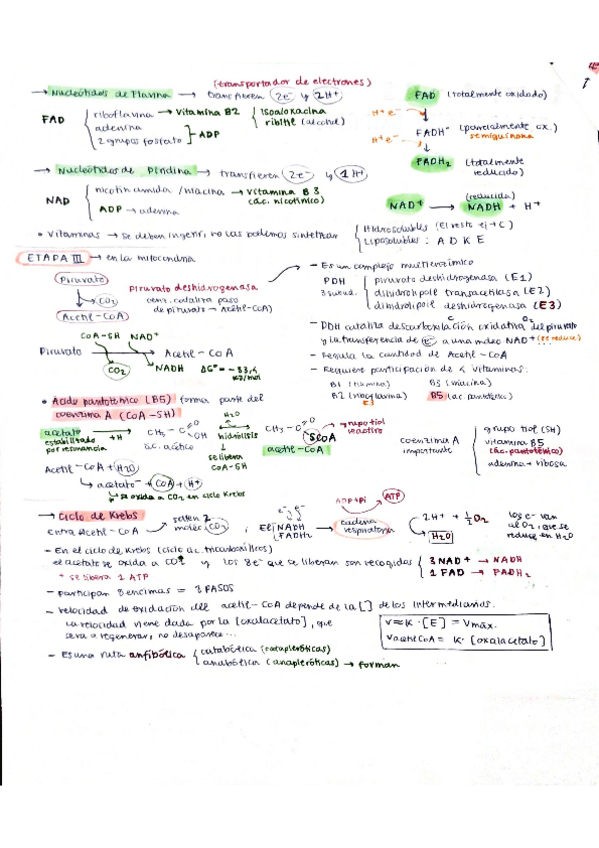 (transportador de electrones)
→ Nucleótidos de Flavina → transfieren 2e⁻ y 2H⁺
FAD { riboflavina → vitamina B2 { isoaloxacina
ribitil (alcohol)
adenina
2 grupos fosfato } → ADP
FAD (totalmente oxidado)
H⁺e⁻
FADH· (parcialmente ox.)
semiquinona
H⁺e⁻
FADH₂ (totalmente
reducido)
→ Nucleótidos de Piridina → transfieren 2e⁻ y 1H⁺
NAD { nicotinamida / niacina → vitamina B3
(ác. nicotínico)
ADP → adenina
(reducida)
NAD⁺ → NADH + H⁺
• Vitaminas → se deben ingerir, no las podemos sintetizar { Hidrosolubles (El resto ej → C)
Liposolubles: A D K E
ETAPA III → en la mitocondria
Piruvato
CO₂
Acetil-CoA
Piruvato deshidrogenasa
cataliza paso
de piruvato → Acetil-CoA
- Es un complejo multienzimático
PDH
3 subud. { piruvato deshidrogenasa (E1)
dihidrolipoil transacetilasa (E2)
dihidrolipoil deshidrogenasa (E3)
- PDH cataliza descarboxilación oxidativa del piruvato
y la transferencia de e⁻ a una molec NAD⁺ (se reduce)
- Regula la cantidad de Acetil-CoA
- Requiere participación de 4 vitaminas:
B1 (tiamina) B3 (niacina)
B2 (riboflavina) B5 (ác. pantoténico)
E3
CoA-SH NAD⁺
Piruvato → Acetil-CoA
CO₂ NADH ΔG°= -33,4
KJ/mol
• Ácido pantoténico (B5) forma parte del
coenzima A (CoA-SH)
acetato
estabilizado
por resonancia
+H
CH₃-C O OH
ác. acético
H₂O
hidrólisis
se libera
CoA-SH
CH₃-C O SCoA
acetil-CoA
grupo tiol
reactivo
coenzima A
importante { grupo tiol (SH)
vitamina B5
(ác. pantoténico)
adenina + ribosa
Acetil-CoA + H₂O
→ acetato⁻ + CoA + H⁺
→ se oxida a CO₂ en ciclo Krebs
→ Ciclo de Krebs
entra Acetil-CoA → salen 2
molec CO₂, El NADH
FADH₂
e⁻ e⁻
cadena
respiratoria
ADP+Pi ATP
2H⁺ + ½O₂
H₂O
los e⁻ van
al O₂, que se
reduce en H₂O
- En el ciclo de Krebs (ciclo ác. tricarboxílicos)
el acetato se oxida a CO₂ y los 8e⁻ que se liberan son recogidos { 3 NAD⁺ → NADH
1 FAD → FADH₂
+ se libera 1 ATP
- participan 8 encimas = 8 PASOS
- velocidad de oxidación del acetil-CoA depende de la [ ] de los intermediarios.
La velocidad viene dada por la [oxalacetato], que
se va a regenerar, no desaparece...
V≈K·[E] = Vmáx.
VacetilCoA = K·[oxalacetato]
- Es una ruta anfibólica { catabólica (catapleróticas)
anabólica (anapleróticas) → forman